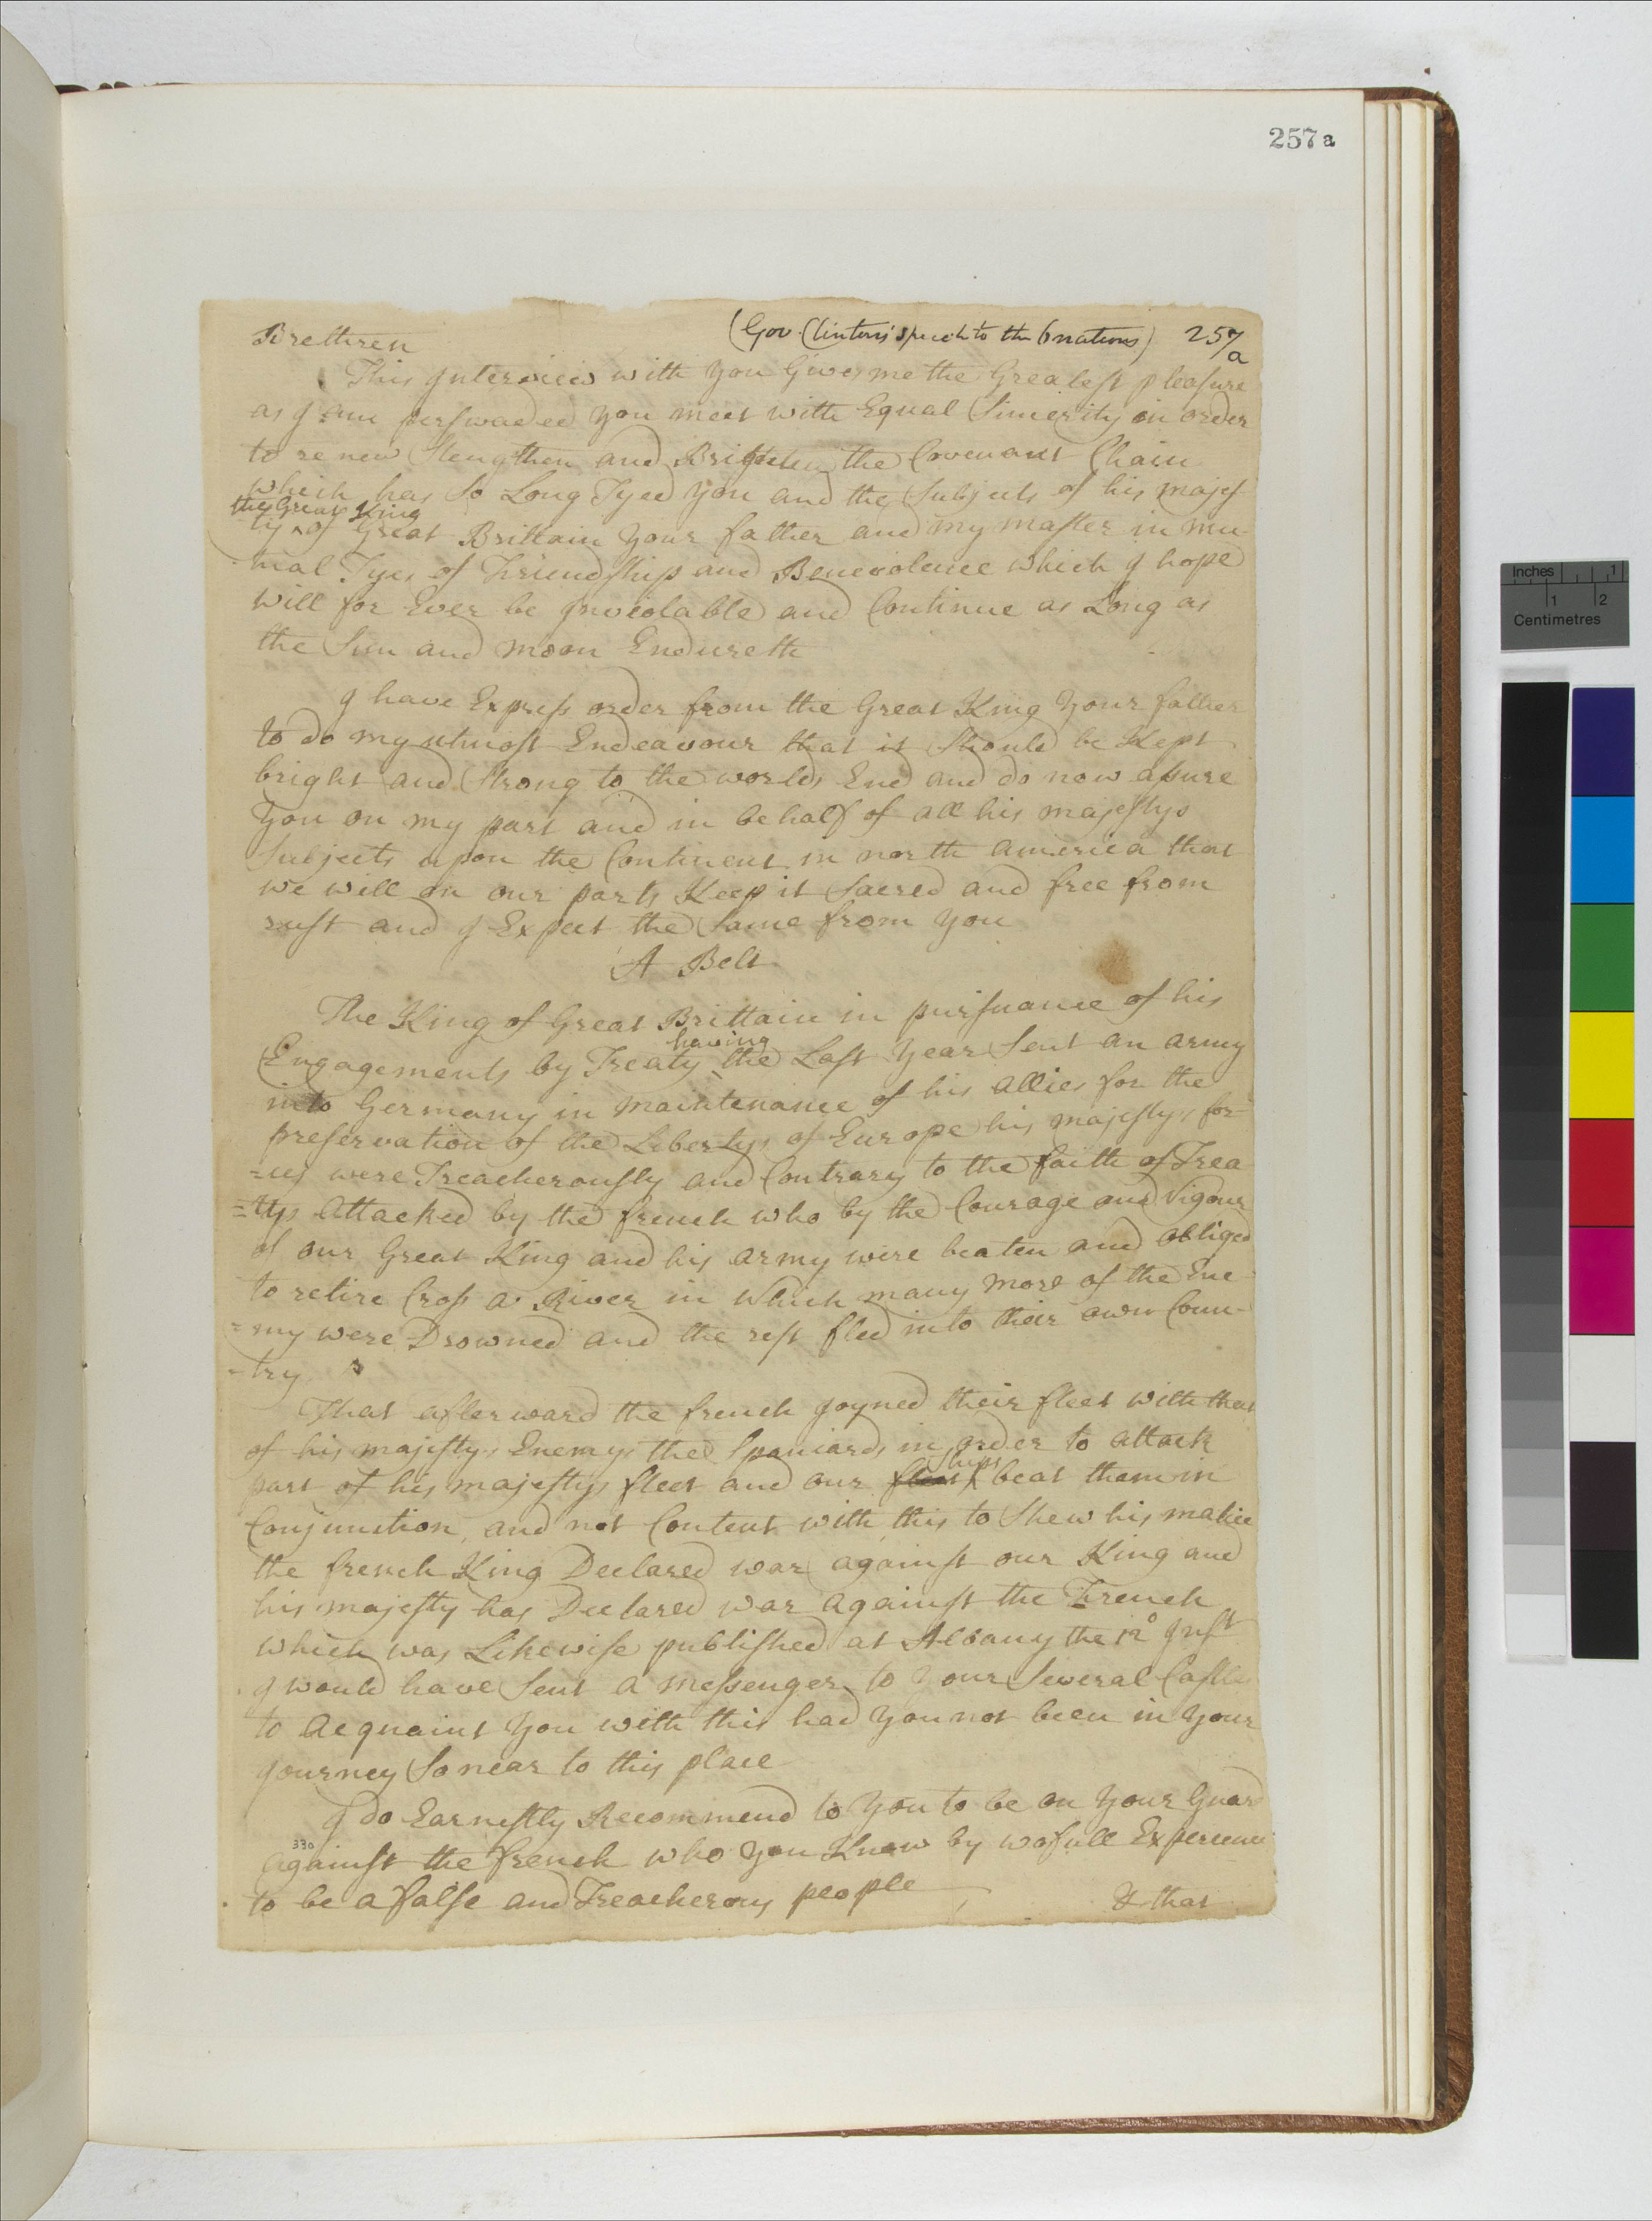 257a
(Gov. Clintons speech to the 6 nations) 257/a
Brethren
This Interview with you Gives me the Greatest pleasure
as I am perswaded you meet with Equal Sincerity in order
to renew Stengthen and Brighten the Covenant Chain
which has So Long Tyed you and the Subjects of his majes
the Great King
ty ^ of Great Brittain your father and my master in mu
tual Tyes of Friendship and Benevolence which I hope
will for Ever be Inviolable and Continue as Long as
the Sun and moon Endureth
I have Express order from the Great King your father
to do my utmost Endeavour that it Should be Kept
bright and Strong to the worlds End and do now assure
you on my part and in behalf of all his majestys
Subjects upon the Continent in north america that
we will on our parts Keep it Sacred and free from
rust and I Expect the Same from you
A Belt
The King of Great Brittain in pursuance of his
having
Engagements by Treaty ^ the Last year Sent an army
into Germany in maintenance of his allies for the
preservation of the Libertys of Europe his majestys for=
=ces were Treacherously and Contrary to the faith of Trea
=tys Attacked by the french who by the Courage and Vigour
of our Great King and his army were beaten and obliged
to retire Cross a River in which many more of the Ene
=my were Drowned and the rest fled into their own Coun-
-try
That afterward the french joyned their fleet with that
of his majestys Enemys the Spaniards in order to attack
Ships
part of his majestys fleet and our fleet ^ beat them in
Conjunction, and not Content with this to Shew his malice
the french King Declared war against our King and
his majesty has Declared war against the French
which was Likewise published at Albany the 12º Inst
I would have Sent a messenger to your Several Castles
to acquaint you with this had you not been in your
journey So near to this place
I do Earnestly Recommend to you to be on your Guard
330
against the french who you Know by wofull Experience
to be a false and Treacherous people
& that
Inches 1
1 2
Centimetres